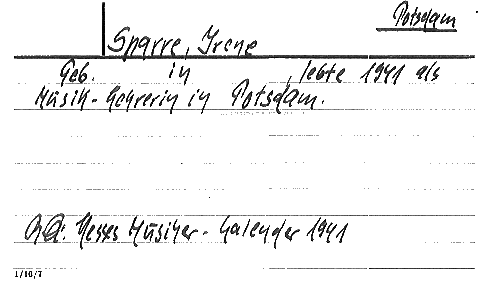 Potsdam
Sparre, Irene
Geb. in , lebte 1941 als
Musik-Lehrerin in Potsdam.
Hesses Musiker-Kalender 1941
1/16/7